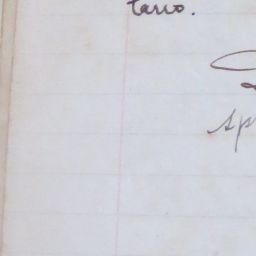 tario.
Ap